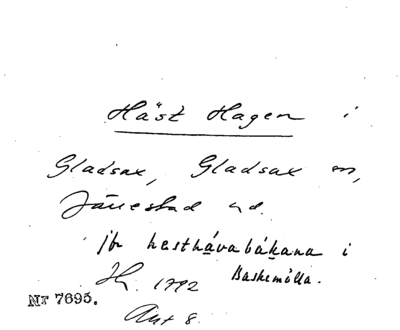 Häst Hagen i
Gladsax, Gladsax sn,
Järrestad hd.
jfr hesthávabákana i
Baskemölla.
1792
Nr 7695.
Akt 8.